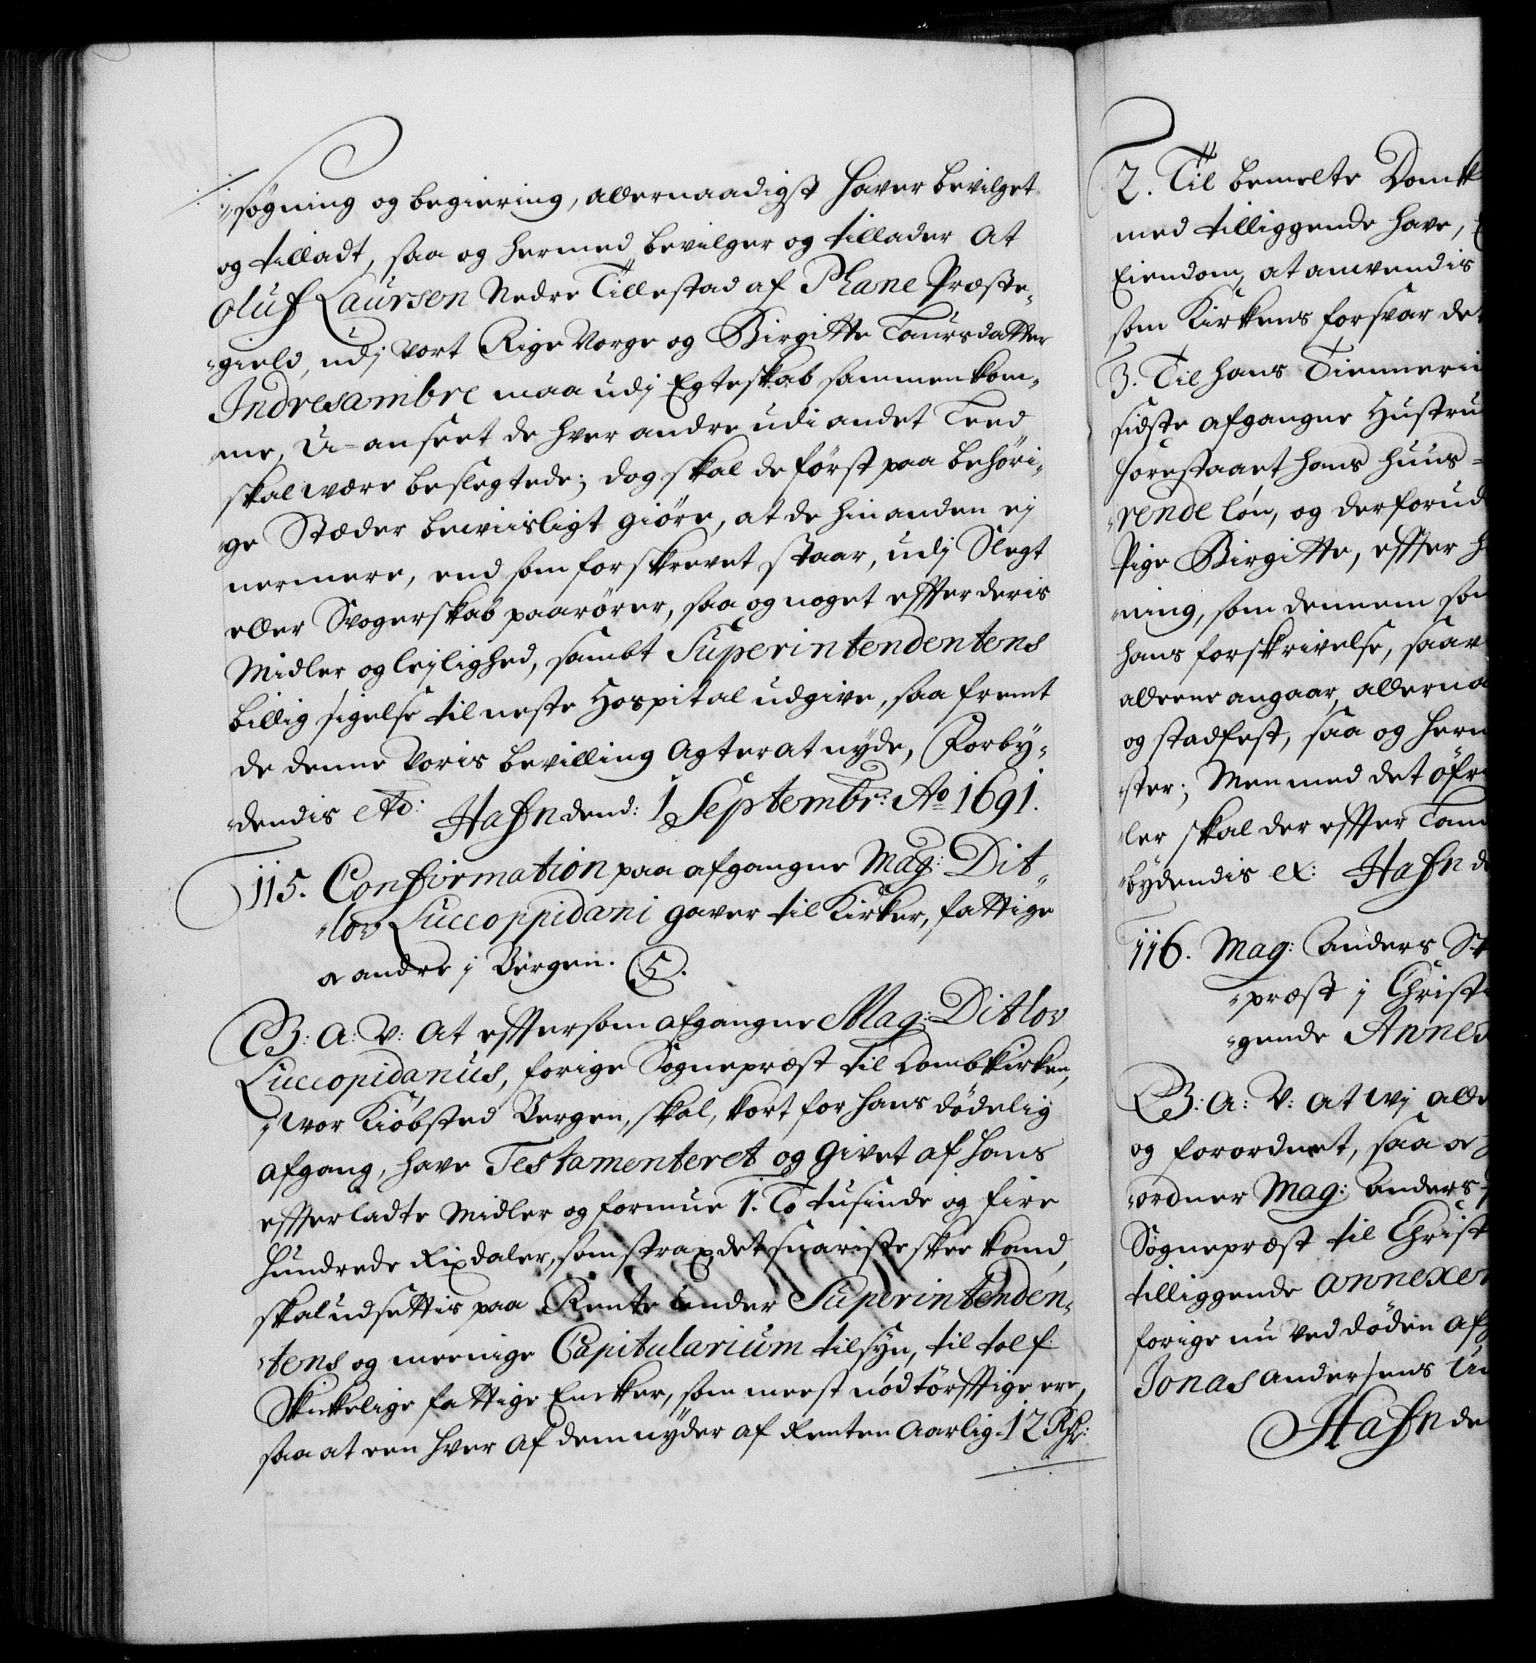 søgning og begiering, allernaadigst haver bevilget
og tilladt, saa og hermed bevilger og tillader At
Oluf Laursen Nedre Tillestad af Plane Præste-
gield, udj vort Rige Norge og Birgitte Laursdatter
Indresambre maa udj Egteskab sammenkom-
me, U-anseet de hver andre udi andet Leed
skal være beslegtede; dog skal de først paa behöri-
ge Stæder beviisligt giöre, at de hinanden ej
nermere, end som forskrevet staar, udj Slegt
eller Svogerskab paarører, saa og noget effter deris
Midler og lejlighed, sambt Superintendentens
billig sigelse til neste Hospital udgive, saa fremt
de denne voris bevilling Agter at nyde, Forby-
dendis etc: Hafn dend: 1 Septembr: Ao 1691.
115. Confirmation paa afgangne Mag: Dit-
lov Luccoppidani gaver til Kirker, fattige
og andre j Bergen. S.
C5: A: V: At efftersom afgangne Mag: Ditlov
Luccopidanus, forige Sognepræst til Dombkirken,
j vor Kiöbsted Bergen, skal, kort for hans dödelig
afgang, have Testamenteret og givet af hans
effterladte Midler og formue 1. To tusinde og fire
hundrede Rixdaler, som strax det snariste skee kand,
skal udsettis paa Rente under Superintenden-
tens og meenige Capitularium tilsyn, til tolf
Skikkelige fattige Encker, som meest nödtörfftige ere,
saa at een hver af dem nyder af Renten Aarlig. 12 Rdr:
2. Til bemelte Domk
med tilliggende have,
Eiendom, at anvendis
som Kirkens forsvar det
3. Til hans Tienneri
sidste afgangne Hustru
forestaaet hans huus-
rende lön, og derforud
Pige Birgitte, effter h
ning, som dennem som
hans forskrivelse, saav
alleene angaar, allerna
og stadfest, saa og herm
ster; Men med det öfri
ler skal der effter Lan
bydendis etc: Hafn de
116. Mag: Anders St
præst j Christi
gende Annex
C5: A: V: At Vj alle
og forordnet, saa og
ordner Mag: Anders
Sognepræst til Christ
tilliggende Annexer
forige nu ved döden afg
Jonas Andersens
Hafn de